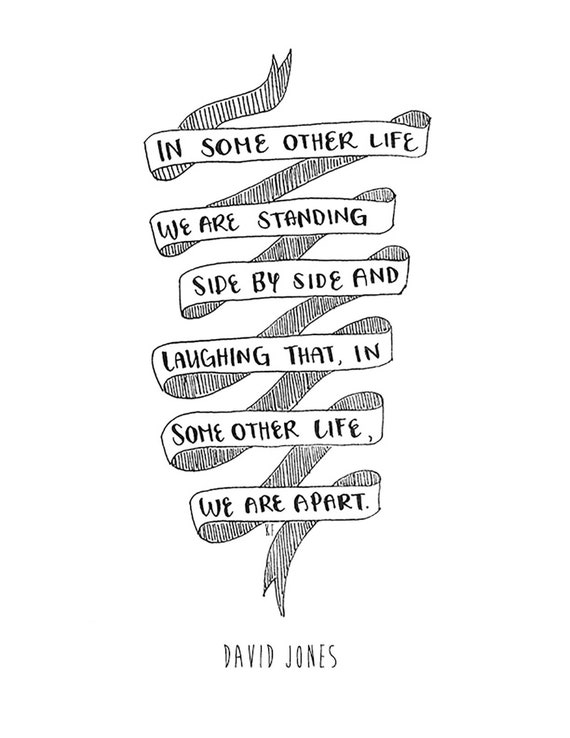 IN SOME OTHER LIFE
WE ARE STANDING
SIDE BY SIDE AND
LAUGHING THAT, IN
SOME OTHER LIFE,
WE ARE APART.
KF
DAVID JONES